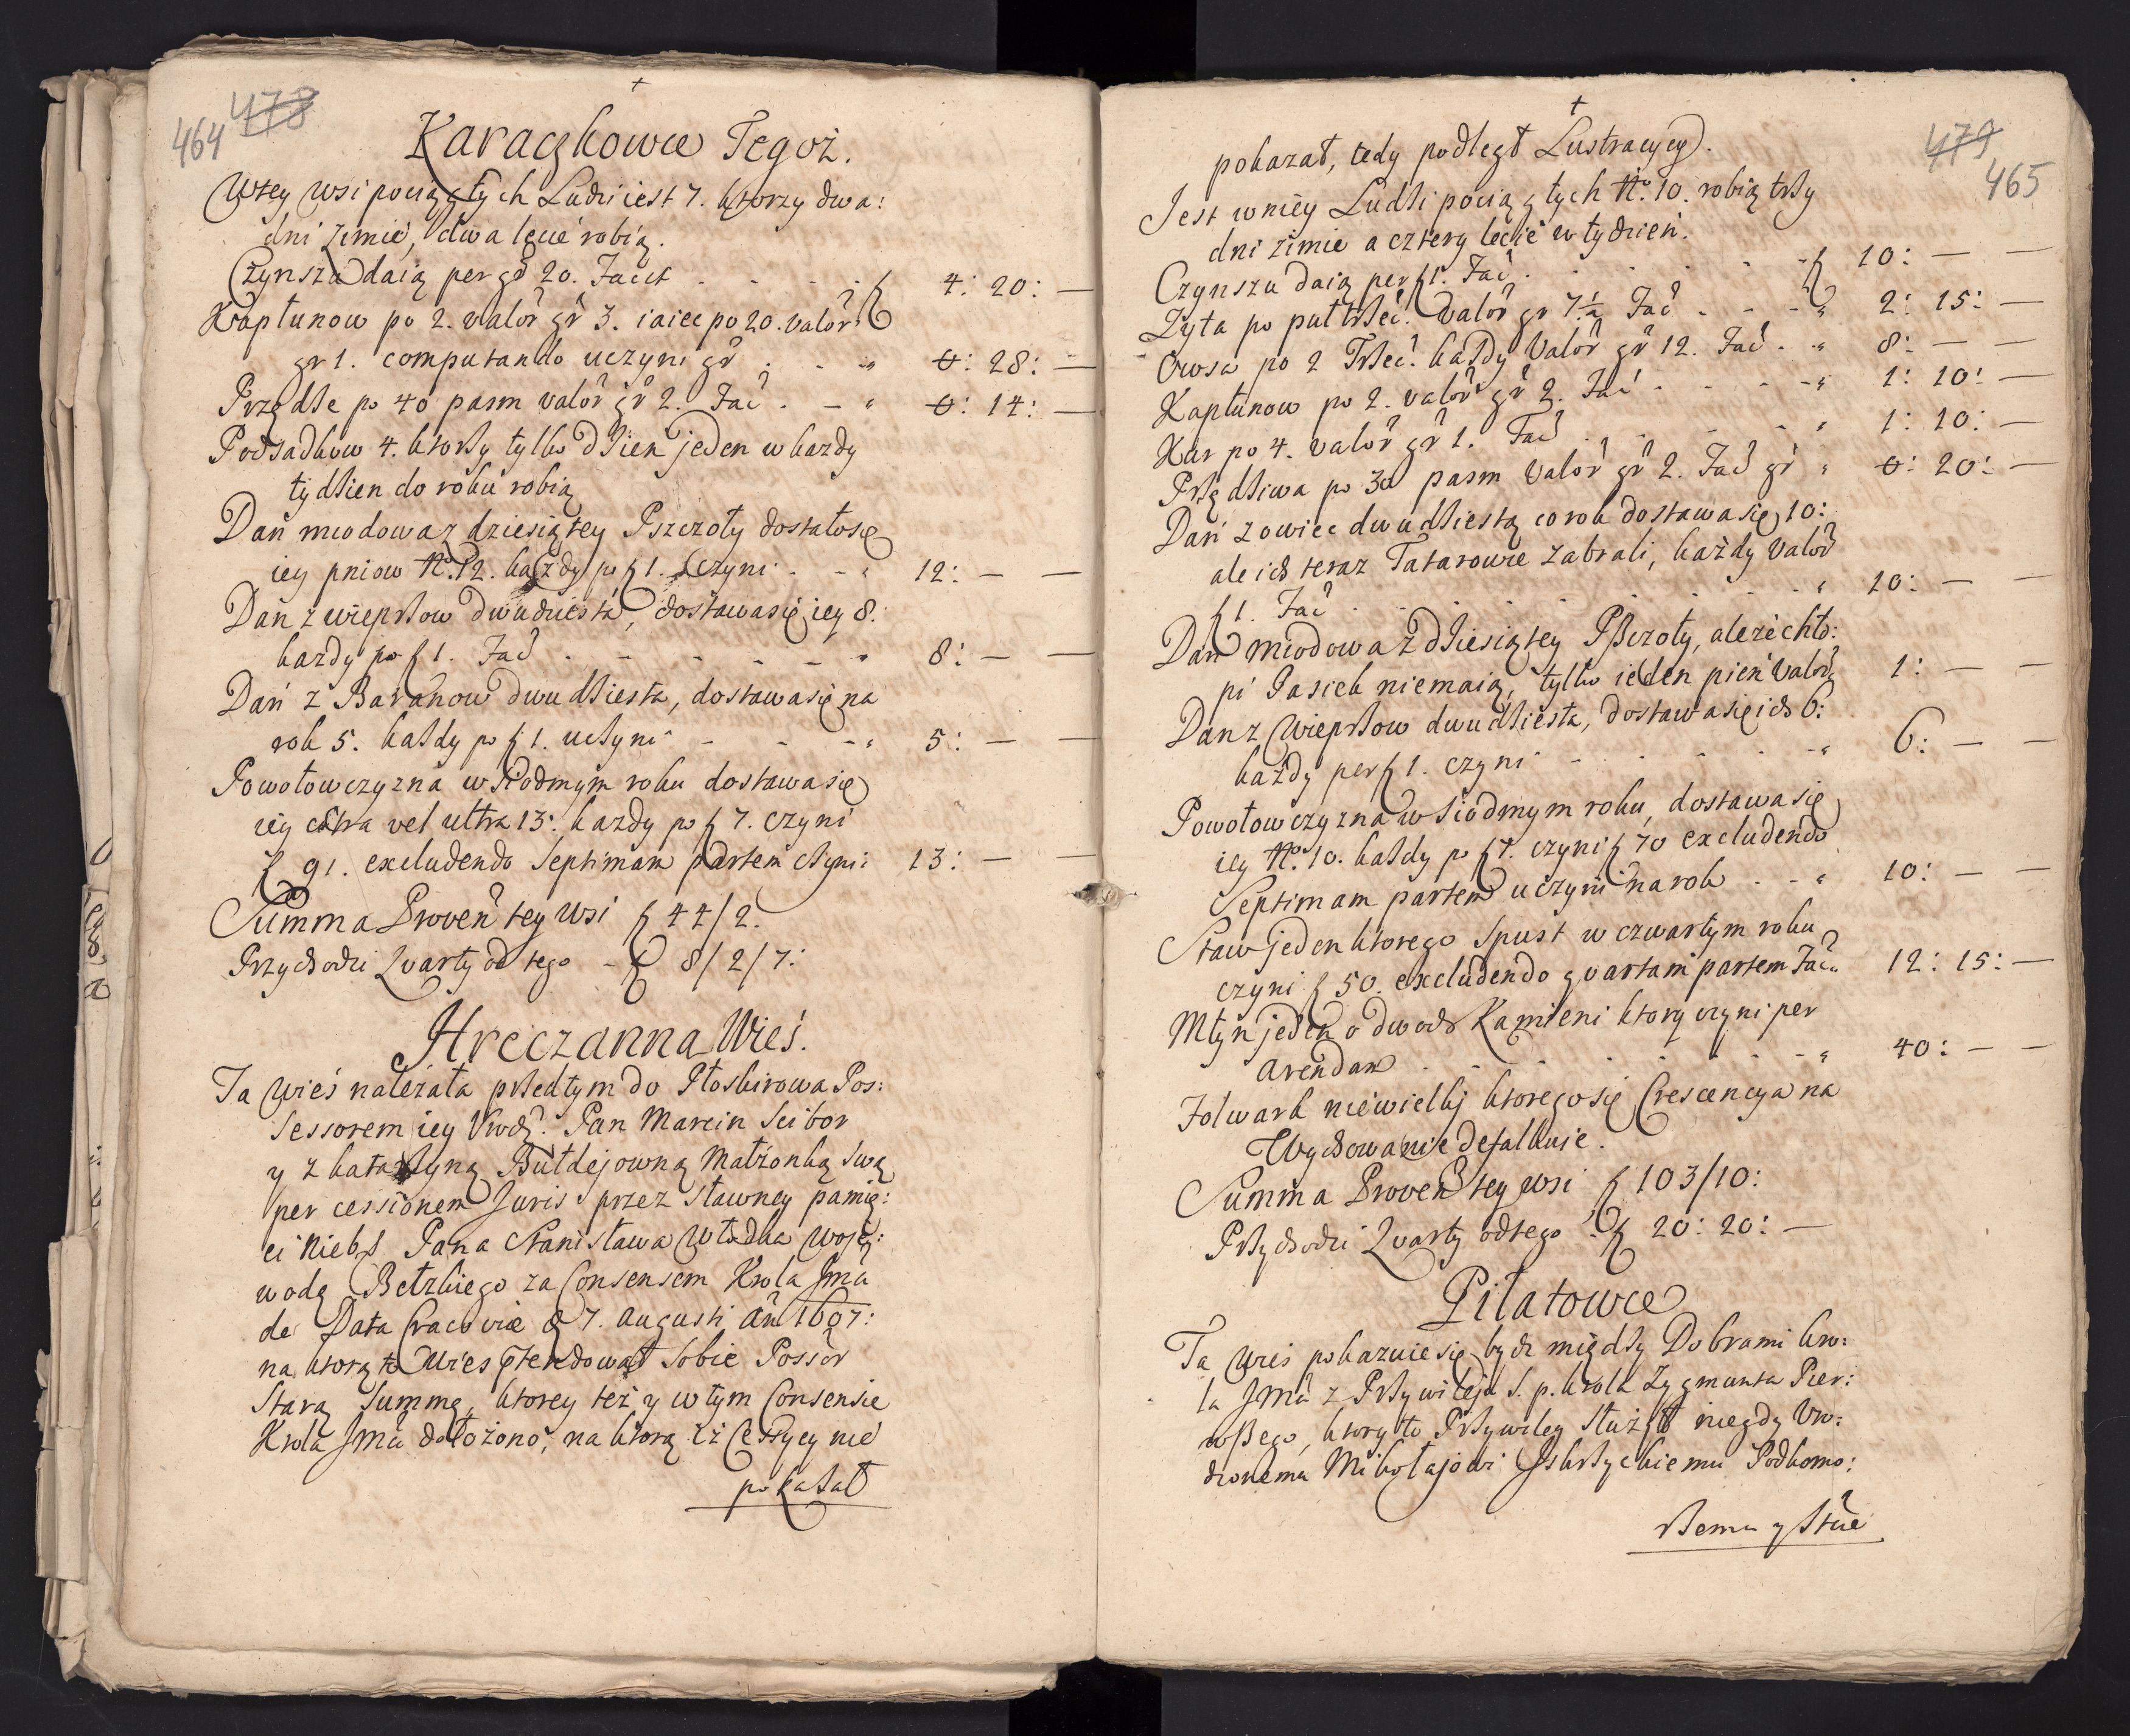 464 478
+
Karaczkowce Tegoż.
W tey wsi pociągłych Ludzi iest 7. ktorzy dwa:
dni zimie, dwa lecie robią.
Czynszu daią per gr 20. Facit . . . . ƒ 4: 20: —
Kapłunow po 2. valor gr 3. iaiec po 20. valor
gr 1. computando uczyni gr . . - „ 0: 28: —
Przędze po 40 pasm valor gr 2. Fac . - „ 0: 14: —
Podsadkow 4. ktorzy tylko dzień jeden w kazdy
tydzien do roku robią
Dań miodowa z dziesiątey Pszczoły dostało się
iey pniow No. 12. kazdy po ƒ 1. czyni . - „ 12: — —
Dań z wieprzow dwudziesta, dostawa się iey 8.
kazdy po ƒ 1. Fac . - - - - - „ 8: — —
Dań z Baranow dwudziesta, dostawa się na
rok 5. każdy po ƒ 1. uczyni - - - „ 5: — —
Powołowczyzna w Siodmym roku dostawa się
iey citra vel ultra 13. kazdy po ƒ 7. czyni
ƒ 91. excludendo Septimam partem czyni: 13: — —
Summa Proven tey wsi ƒ 44/2.
Przychodzi Quarty od tego - ƒ 8/2/7:
Hreczanna Wieś.
Ta Wieś należała przedtym do Płoskirowa Pos:
sessorem iey Urodz. Pan Marcin Scibor
y z Katarzyną Bułdejowną Małżonką swą
per cessionem Juris przez sławney pamię:
ci niebp Pana Stanisława Włodka Woje:
wodę Bełzkiego za Consensem Krola Jmci
de Data Cracoviæ d 7. Augusti An 1607:
na ktorą to Wieś prætendował sobie Possor
Starą Summę, ktorey też y w tym Consensie
Krola Jmci dołożono, na ktorą iż Cessyey nie
pokazał
479
465
+
pokazał, tedy podległ Lustracyey.
Jest w niey Ludzi pociągłych No. 10. robią trzy
dni zimie a cztery lecie w tydzień.
Czynszu daią per ƒ 1. Fac . . . . . - ƒ 10: — —
Zyta po puł trzeć. valor gr 7½ Fac . - - „ 2: 15: —
Owsa po 2 Trzeć. każdy Valor gr 12. Fac . „ 8: — —
Kapłunow po 2. valor gr 2. Fac . - - - „ 1: 10: —
Kur po 4. valor gr 1. Fac . . . - „ 1: 10: —
Przędziwa po 30 pasm Valor gr 2. Fac gr „ 0: 20: —
Dań z owiec dwudziesta co rok dostawa się 10:
ale ich teraz Tatarowie zabrali, każdy Valor
ƒ 1. Fac . - - - - - - „ 10: — —
Dań miodowa z dziesiątey Pszczoły, ale że chło:
pi Pasiek niemaią, tylko ieden pień Valor „ 1: — —
Dań z Wieprzow dwudziesta, dostawa się ich 6:
każdy per ƒ 1. czyni - . . . . - „ 6: — —
Powołowczyzna w siodmym roku, dostawa się
iey No. 10. każdy po ƒ 7. czyni ƒ 70 excludendo
Septimam partem uczyni na rok . - „ 10: — —
Staw jeden ktorego Spust w czwartym roku
czyni ƒ 50. excludendo quartam partem Fac „ 12: 15: —
Młyn jeden o dwoch Kamieni ktory czyni per
arendam . . - - - - - „ 40: — —
Folwark niewielki ktorego się Crescencya na
Wychowanie defalkuie.
Summa Proven tey wsi ƒ 103/10:
Przychodzi Quarty od tego . ƒ 20: 20: —
Piłatowce
Ta Wieś pokazuie się bydź między Dobrami kro:
la Jmci z Przywileju S. p. krola Zygmunta Pier:
wszego, ktory to Przywiley służył niegdy Uro:
dzonemu Mikołajowi Iskrzyckiemu Podkomo:
rzemu y